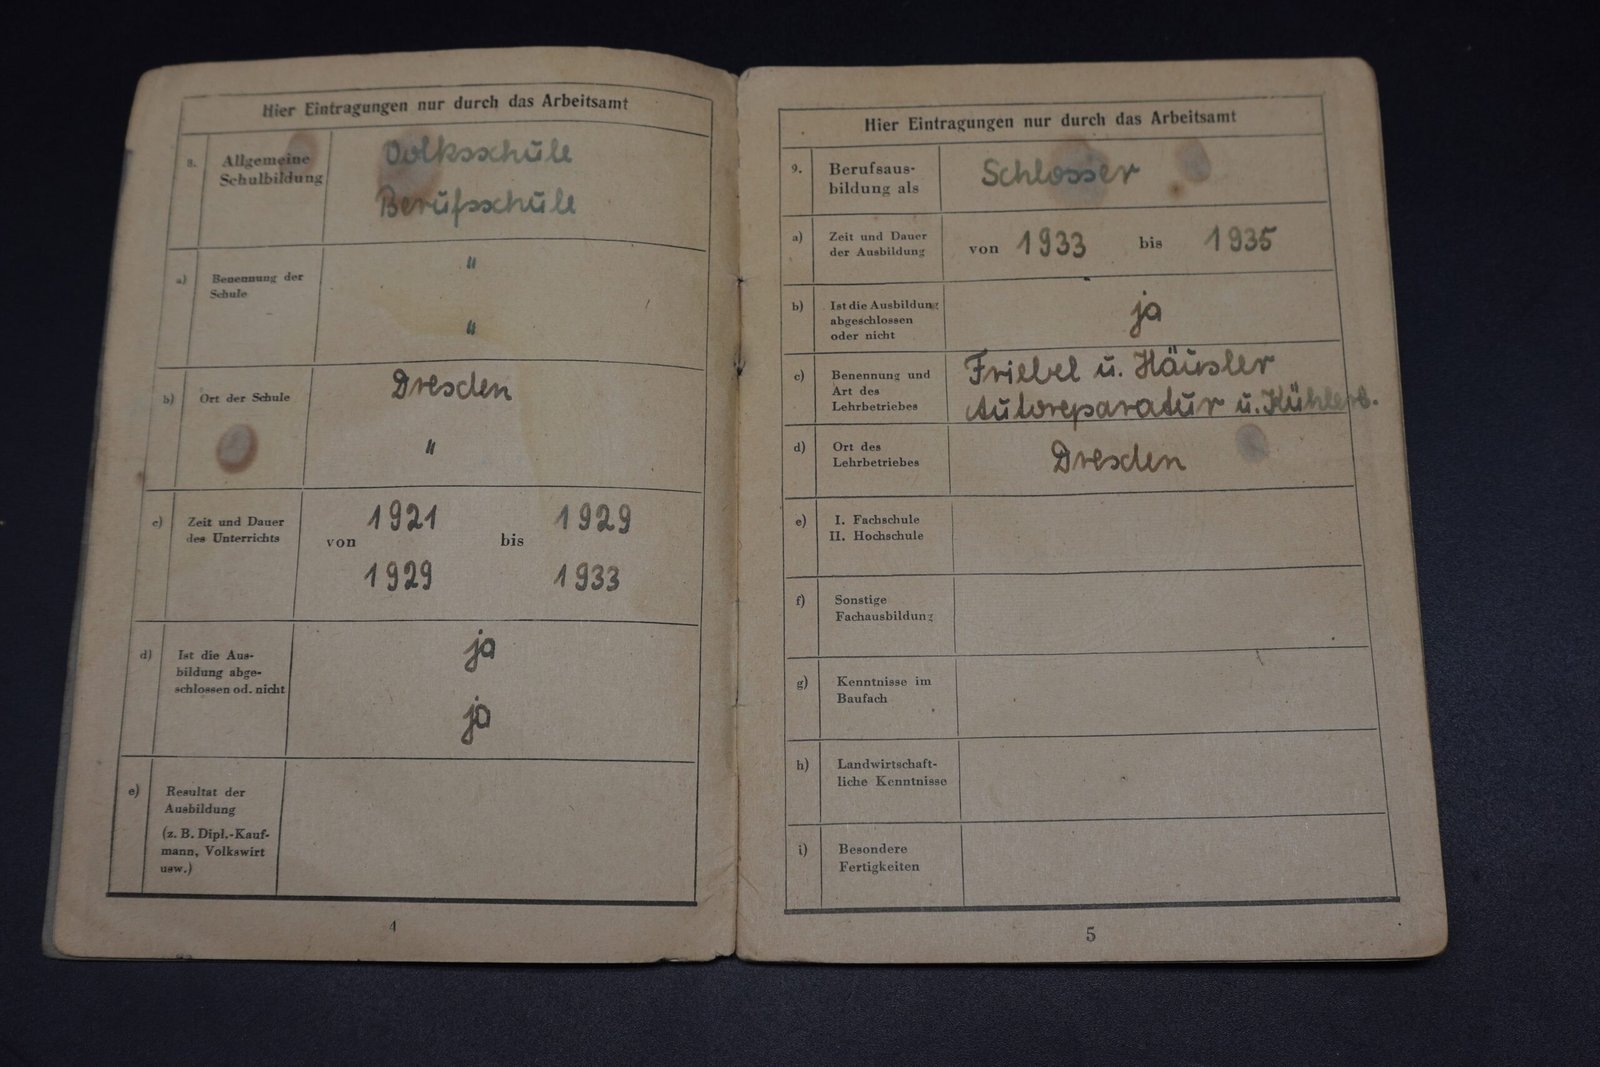 Hier Eintragungen nur durch das Arbeitsamt
8. Allgemeine Schulbildung
Volksschule
Berufsschule
a) Benennung der Schule
"
"
b) Ort der Schule
Dresden
"
c) Zeit und Dauer des Unterrichts
von 1921 bis 1929
1929 1933
d) Ist die Aus-
bildung abge-
schlossen od. nicht
ja
ja
e) Resultat der
Ausbildung
(z. B. Dipl.-Kauf-
mann, Volkswirt
usw.)
4
Hier Eintragungen nur durch das Arbeitsamt
9. Berufsaus-
bildung als
Schlosser
a) Zeit und Dauer
der Ausbildung
von 1933 bis 1935
b) Ist die Ausbildung
abgeschlossen
oder nicht
ja
c) Benennung und
Art des
Lehrbetriebes
Friebel u. Häusler
Autoreparatur u. Kühlerb.
d) Ort des
Lehrbetriebes
Dresden
e) I. Fachschule
II. Hochschule
f) Sonstige
Fachausbildung
g) Kenntnisse im
Baufach
h) Landwirtschaft-
liche Kenntnisse
i) Besondere
Fertigkeiten
5